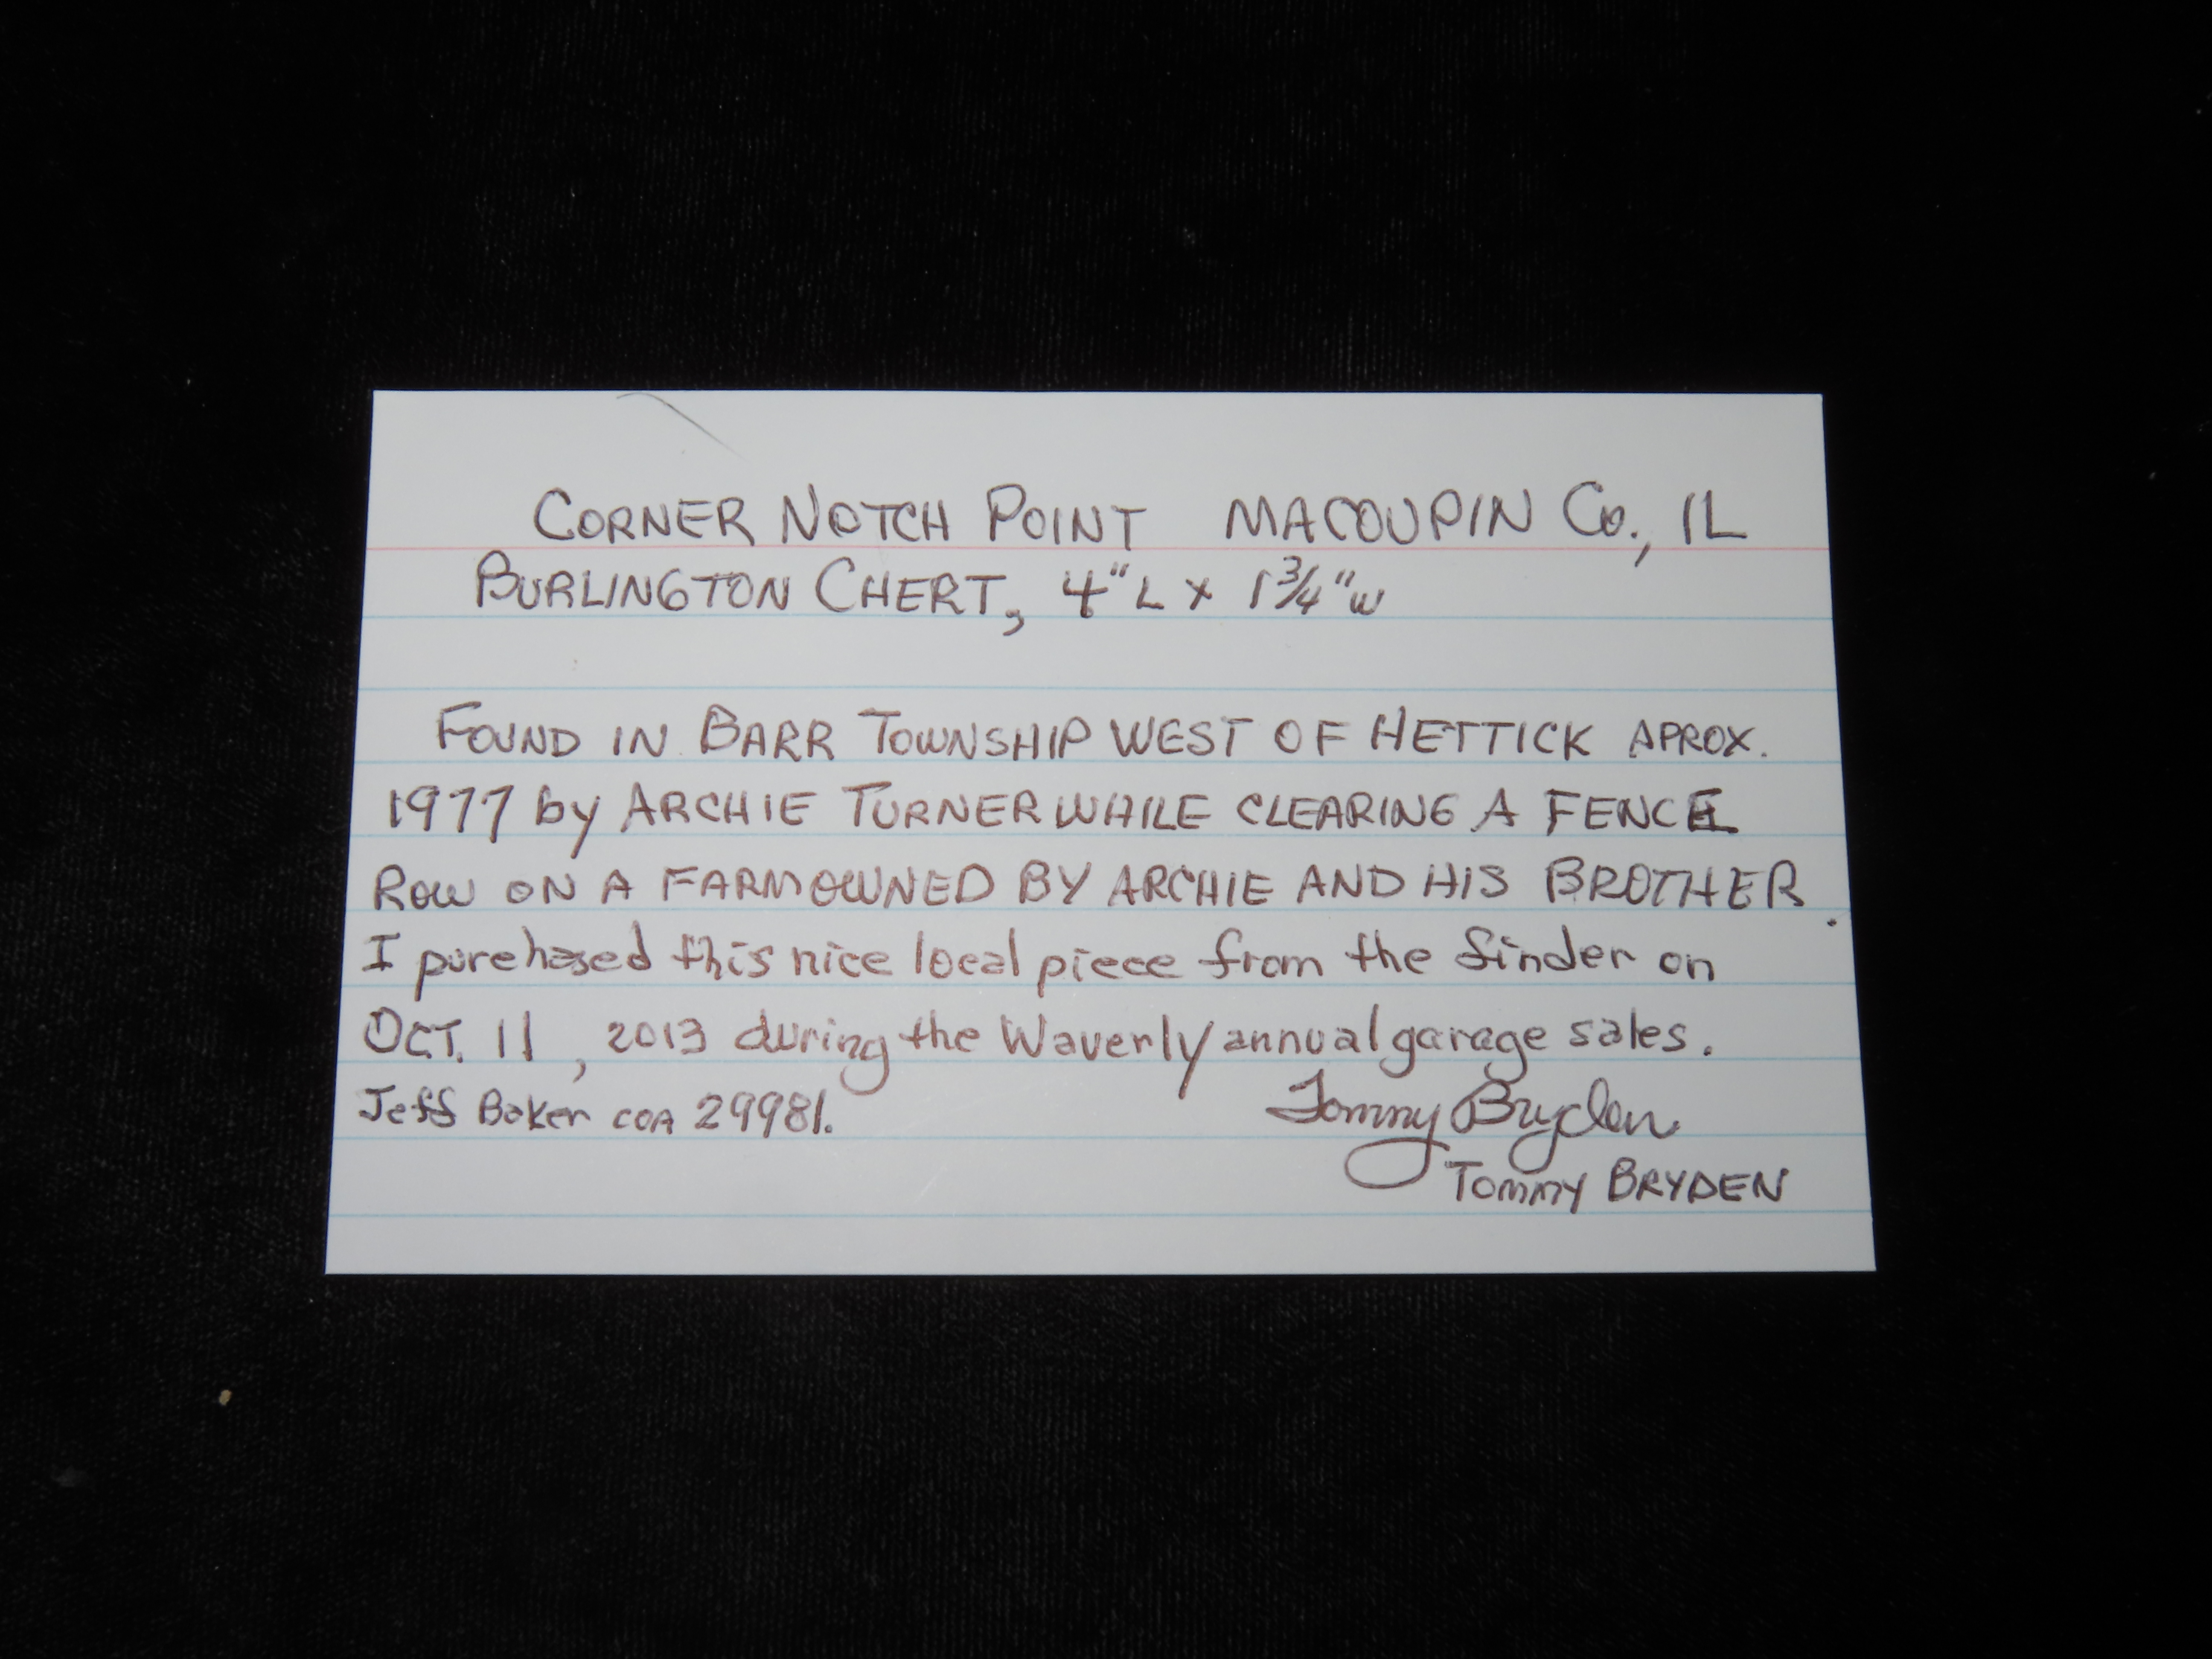 CORNER NOTCH POINT MACOUPIN Co., IL
BURLINGTON CHERT, 4"L x 1 3/4"W
FOUND IN BARR TOWNSHIP WEST OF HETTICK APROX.
1977 by ARCHIE TURNER WHILE CLEARING A FENCE
ROW ON A FARM OWNED BY ARCHIE AND HIS BROTHER.
I purchased this nice local piece from the finder on
OCT. 11, 2013 during the Waverly annual garage sales.
Jeff Baker COA 29981. Tommy Bryden
TOMMY BRYDEN